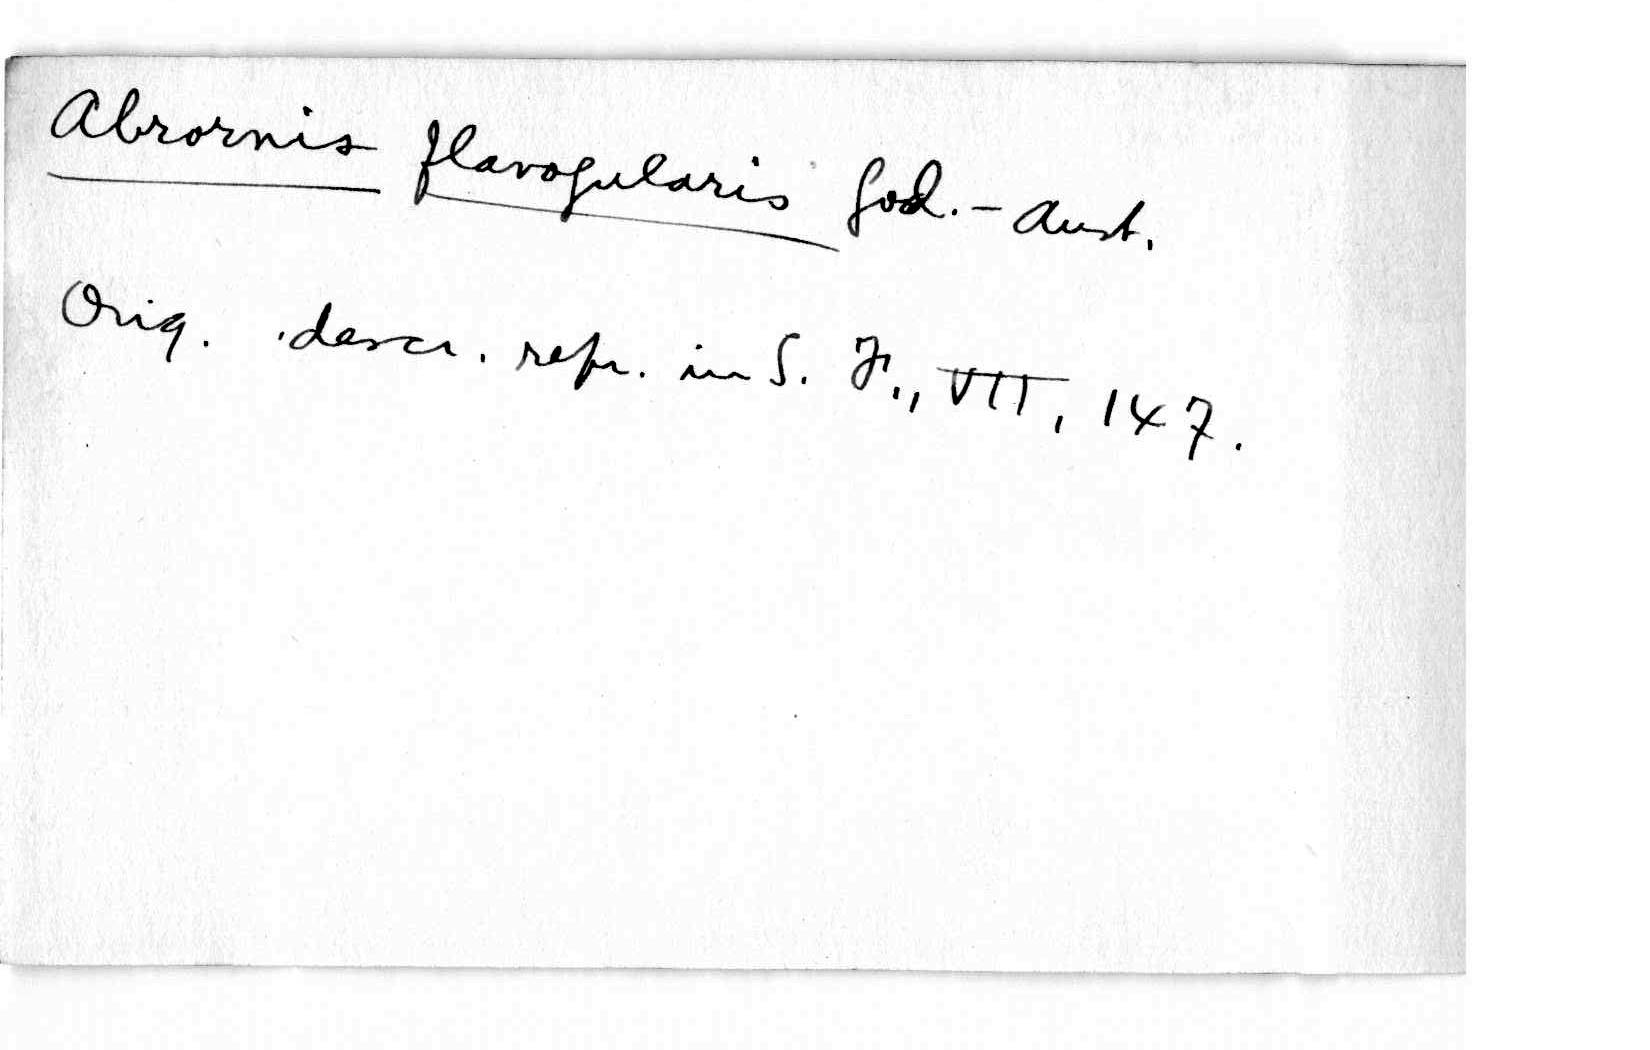 Abrornis flavogularis God.-Aust.
Orig. descr. repr. in S. F., VII, 147.